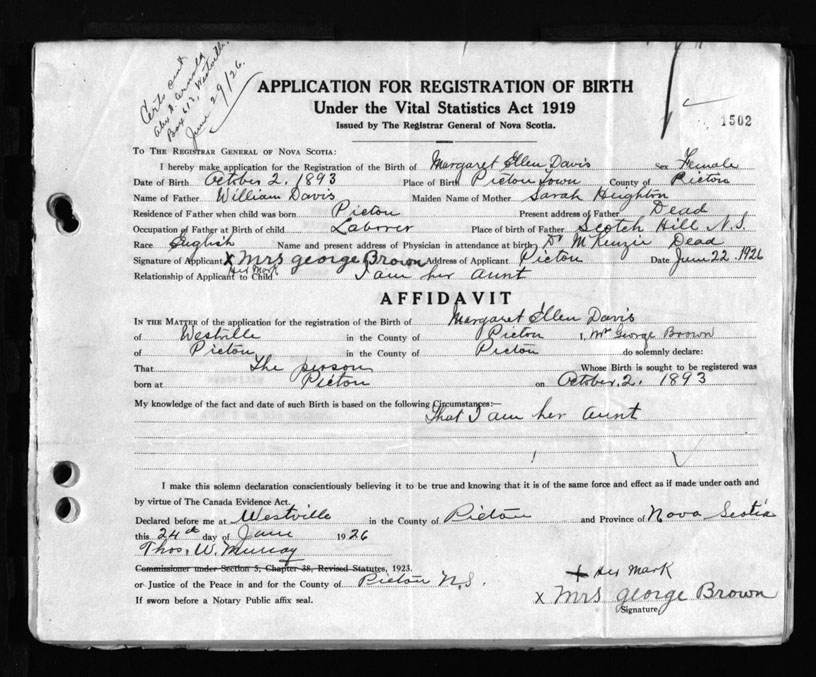 Certs sent
Box 612, Westville.
June 29/26.
APPLICATION FOR REGISTRATION OF BIRTH
Under the Vital Statistics Act 1919
Issued by The Registrar General of Nova Scotia.
1502
TO THE REGISTRAR GENERAL OF NOVA SCOTIA:
I hereby make application for the Registration of the Birth of Margaret Ellen Davis Sex Female
Date of Birth October 2. 1893 Place of Birth Pictou Town County of Pictou
Name of Father William Davis Maiden Name of Mother Sarah Heighton
Residence of Father when child was born Pictou Present address of Father Dead
Occupation of Father at Birth of child Laborer Place of birth of Father Scotch Hill N.S.
Race English Name and present address of Physician in attendance at birth Dr McKenzie Dead
Signature of Applicant X Mrs george Brown Address of Applicant Pictou Date June 22 1926
her Mark
Relationship of Applicant to Child I am her aunt
AFFIDAVIT
IN THE MATTER of the application for the registration of the Birth of Margaret Ellen Davis
of Westville in the County of Pictou , Mr George Brown
of Pictou in the County of Pictou do solemnly declare:
That The person Whose Birth is sought to be registered was
born at Pictou on October, 2. 1893
My knowledge of the fact and date of such Birth is based on the following Circumstances:—
That I am her aunt
I make this solemn declaration conscientiously believing it to be true and knowing that it is of the same force and effect as if made under oath and
by virtue of The Canada Evidence Act.
Declared before me at Westville in the County of Pictou and Province of Nova Scotia
this 24th day of June 1926
Thos. W. Murray
Commissioner under Section 5, Chapter 38, Revised Statutes, 1923.
or Justice of the Peace in and for the County of Pictou N.S.
If sworn before a Notary Public affix seal.
X Her Mark
X Mrs george Brown
Signature